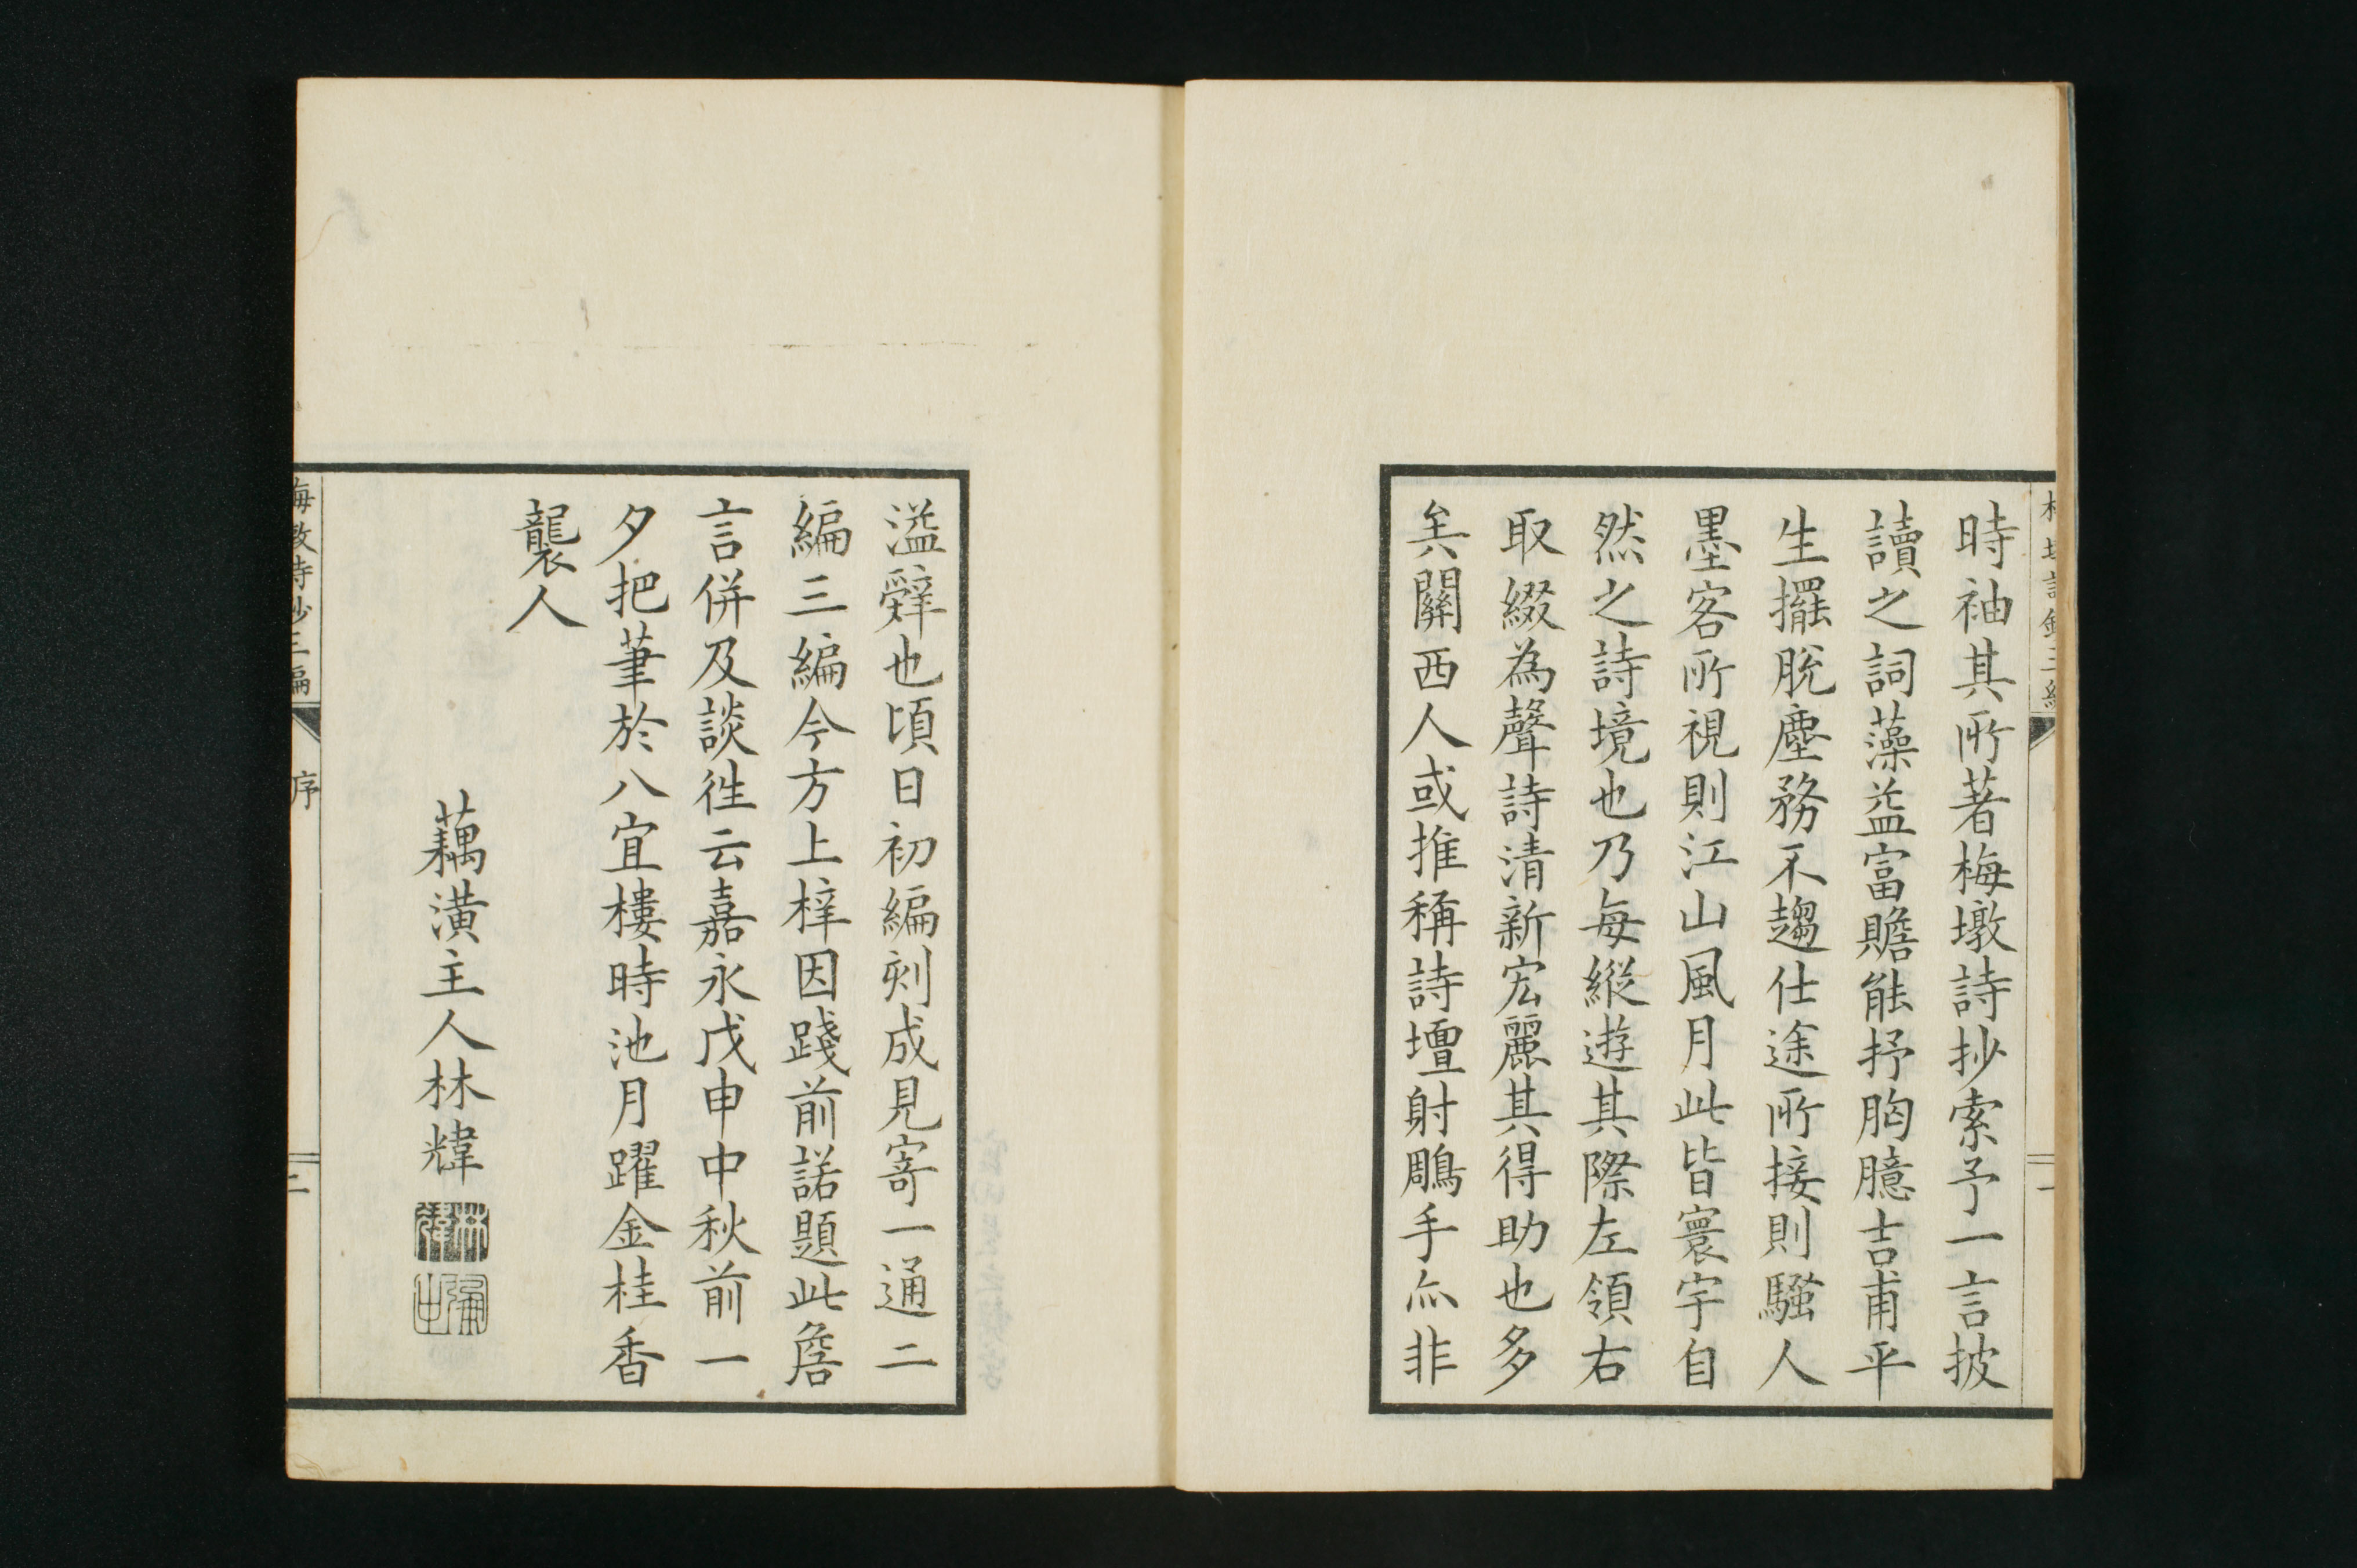 時袖其所著梅墩詩抄索予一言披
讀之詞藻益富贍能抒胸臆吉甫平
生擺脫塵務不趨仕途所接則騷人
墨客所視則江山風月此皆寰宇自
然之詩境也乃每縱遊其際左領右
取綴為聲詩清新宏麗其得助也多
矣關西人或推稱詩壇射鵰手亦非
溢辭也頃日初編刻成見寄一通二
編三編今方上梓因踐前諾題此詹
言併及談徃云嘉永戊申中秋前一
夕把筆於八宜樓時池月躍金桂香
襲人
藕潢主人林煒
梅墩詩抄三編
序
二